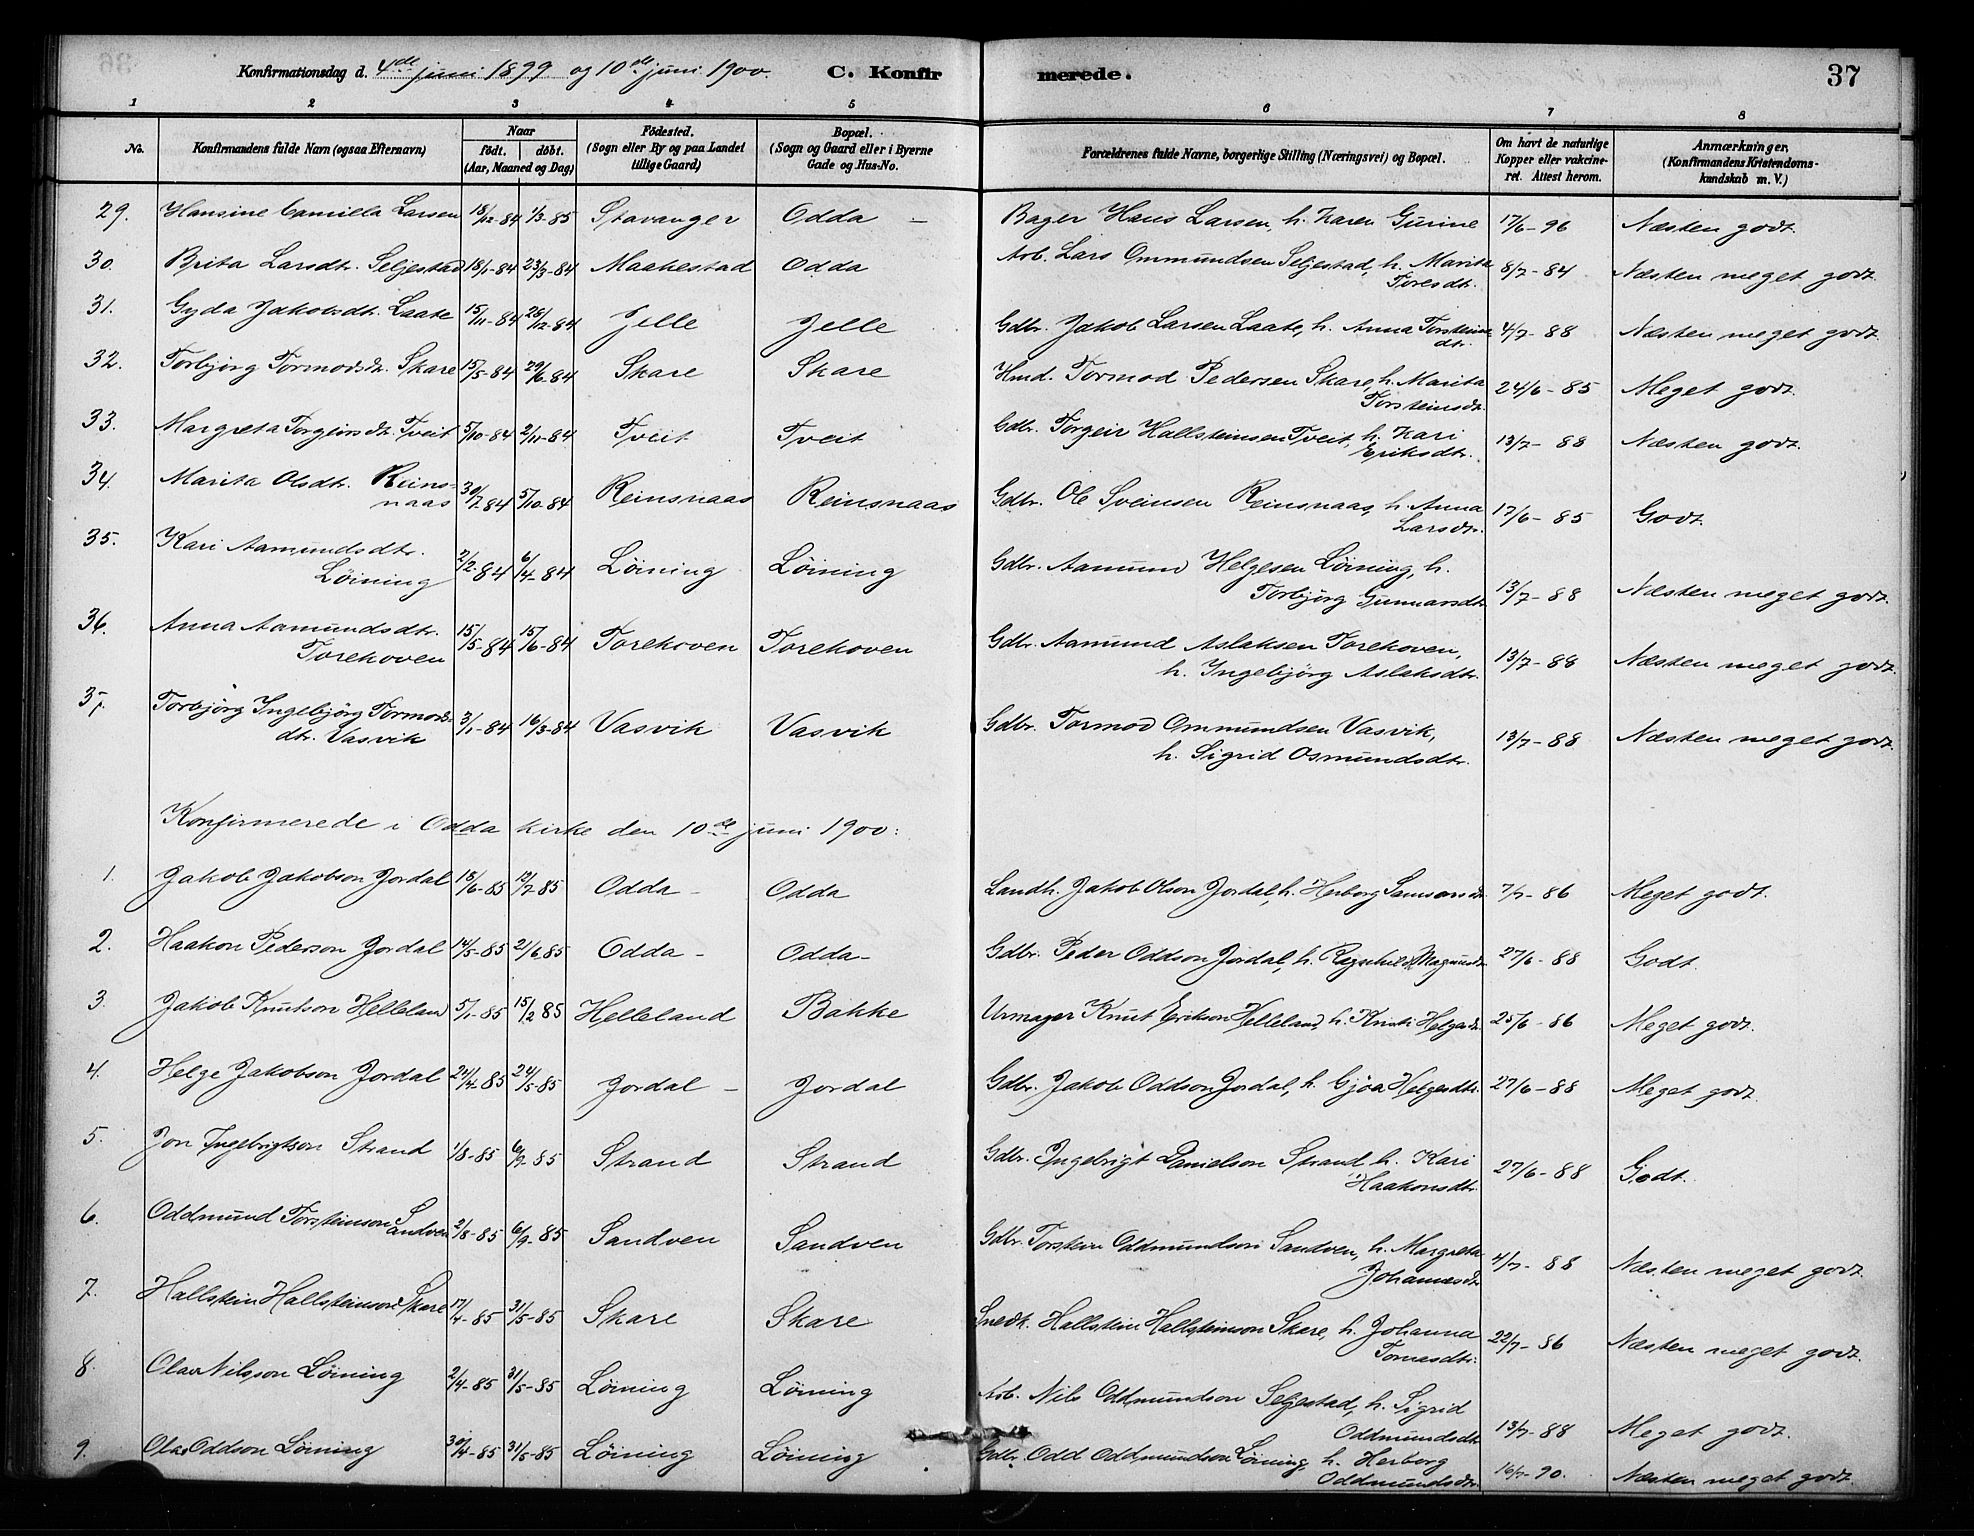 Konfirmationsdag d. 4de juni 1899 og 10de juni 1900. C. Konfirmerede. 37
1 2 3 4 5 6 7 8
No. Konfirmandens fulde Navn (ogsaa Efternavn) Naar födt. döbt. (Aar, Maaned og Dag) Födested. (Sogn eller By og paa Landet tillige Gaard) Bopæl. (Sogn og Gaard eller i Byerne Gade og Hus-No. Forældrenes fulde Navne, borgerlige Stilling (Næringsvei) og Bopæl. Om havt de naturlige Kopper eller vakcineret. Attest herom. Anmærkninger, (Konfirmandens Kristendomskundskab m. V.)
29. Hansine Camilla Larsen 18/12-84 1/3-85 Stavanger Odda – Bager Hans Larsen, h. Karen Gurine 17/6-96 Næsten godt.
30. Brita Larsdtr. Seljestad 18/1-84 23/3-84 Maakestad Odda Arb. Lars Ommundsen Seljestad, h. Marita Toresdt. 8/7-84 Næsten meget godt.
31. Gyda Jakobsdt. Laate 15/11-84 26/12-84 Jelle Jelle Gdbr. Jakob Larsen Laate, h. Anna Torsteinsdtr. 4/7-88 Næsten meget godt.
32. Torbjörg Tormodsdt. Skare 15/5-84 29/6-84 Skare Skare Hmd. Tormod Pedersen Skare, h. Marita Torsteinsdt. 24/6-85 Meget godt.
33. Margreta Torgeirsdt. Tveit 5/10-84 2/11-84 Tveit Tveit Gdbr. Torgeir Hallsteinsen Tveit, h. Kari Eriksdtr. 13/7-88 Næsten godt.
34. Marita Olsdtr. Reinsnaas 30/7-84 5/10-84 Reinsnaas Reinsnaas Gdbr. Ole Sveinsen Reinsnaas, h. Anna Larsdtr. 17/6-85 Godt.
35. Kari Aamundsdtr. Löining 2/2-84 6/4-84 Löining Löining Gdbr. Aamund Helgesen Löining, h. Torbjörg Gunnarsdtr. 13/7-88 Næsten meget godt.
36. Anna Aamundsdtr. Torekoven 15/5-84 15/6-84 Torekoven Torekoven Gdbr. Aamund Aslaksen Torekoven, h. Ingebjörg Aslaksdtr. 13/7-88 Næsten meget godt.
37. Torbjörg Ingebjörg Tormodsdtr. Vasvik 3/1-84 16/3-84 Vasvik Vasvik Gdbr. Tormod Ommundsen Vasvik, h. Sigrid Osmundsdtr. 13/7-88 Næsten meget godt.
Konfirmerede i Odda kirke den 10de juni 1900:
1. Jakob Jakobson Jordal 18/6-85 12/7-85 Odda – Odda Landh. Jakob Olson Jordal, h. Herborg Samsonsdt. 7/7-86 Meget godt.
2. Haakon Pederson Jordal 14/5-85 21/6 85 Odda – Odda – Gdbr. Peder Oddson Jordal, h. Magnusdt. 27/6-88 Godt.
3. Jakob Knutson Helleland 5/1-85 15/2 85 Helleland Bakke Urmager Knut Erikson Helleland, h. Kristi Helgesdt. 25/6-86 Meget godt.
4. Helge Jakobson Jordal 22/4-85 24/5-85 Jordal – Jordal Gdbr. Jakob Oddson Jordal, h. Gjöa Helgesdtr. 27/6-88 Meget godt.
5. Jon Ingebrigtson Strand 1/8-85 6/9-85 Strand Strand Gdbr. Ingebrigt Danielson Strand, h. Kari Haakonsdtr. 27/6-88 Godt.
6. Oddmund Torsteinson Sandven 2/8-85 6/9-85 Sandven Sandven Gdbr. Torstein Oddmundson Sandven, h. Margreta Johannesdt. 4/7-88 Næsten meget godt.
7. Hallstein Hallsteinson Skare 17/4-85 31/5-85 Skare Skare Snedk. Hallstein Hallsteinson Skare, h. Johanna Tomasdtr. 22/7-86 Næsten meget godt.
8. Olav Nilsson Löining 2/4-85 31/5-85 Löining Löining Arb. Nils Oddmundson Seljestad, h. Sigrid Oddmundsdt. 13/7-88 Meget godt.
9. Olav Oddson Löining 30/4-85 31/5-85 Löining Löining Gdbr. Odd Oddmundson Löining, h. Herborg Oddmundsdtr. 16/7-90. Næsten meget godt.